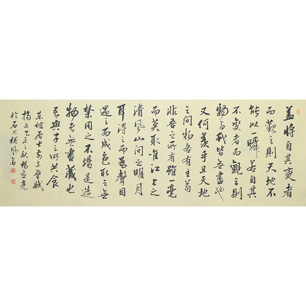 蓋將自其变者
而觀之則天地不
能以一瞬自其
不變者而觀之則
物與我皆無盡也
又何羨乎且天地
之間物各有主苟
非吾之所有雖一毫
而莫取惟江上之
清風山間之明月
耳得之而為聲目
遇之而成色取之無
禁用之不竭是造
物者無盡藏也
吾與子所共食
東坡居士前赤壁賦